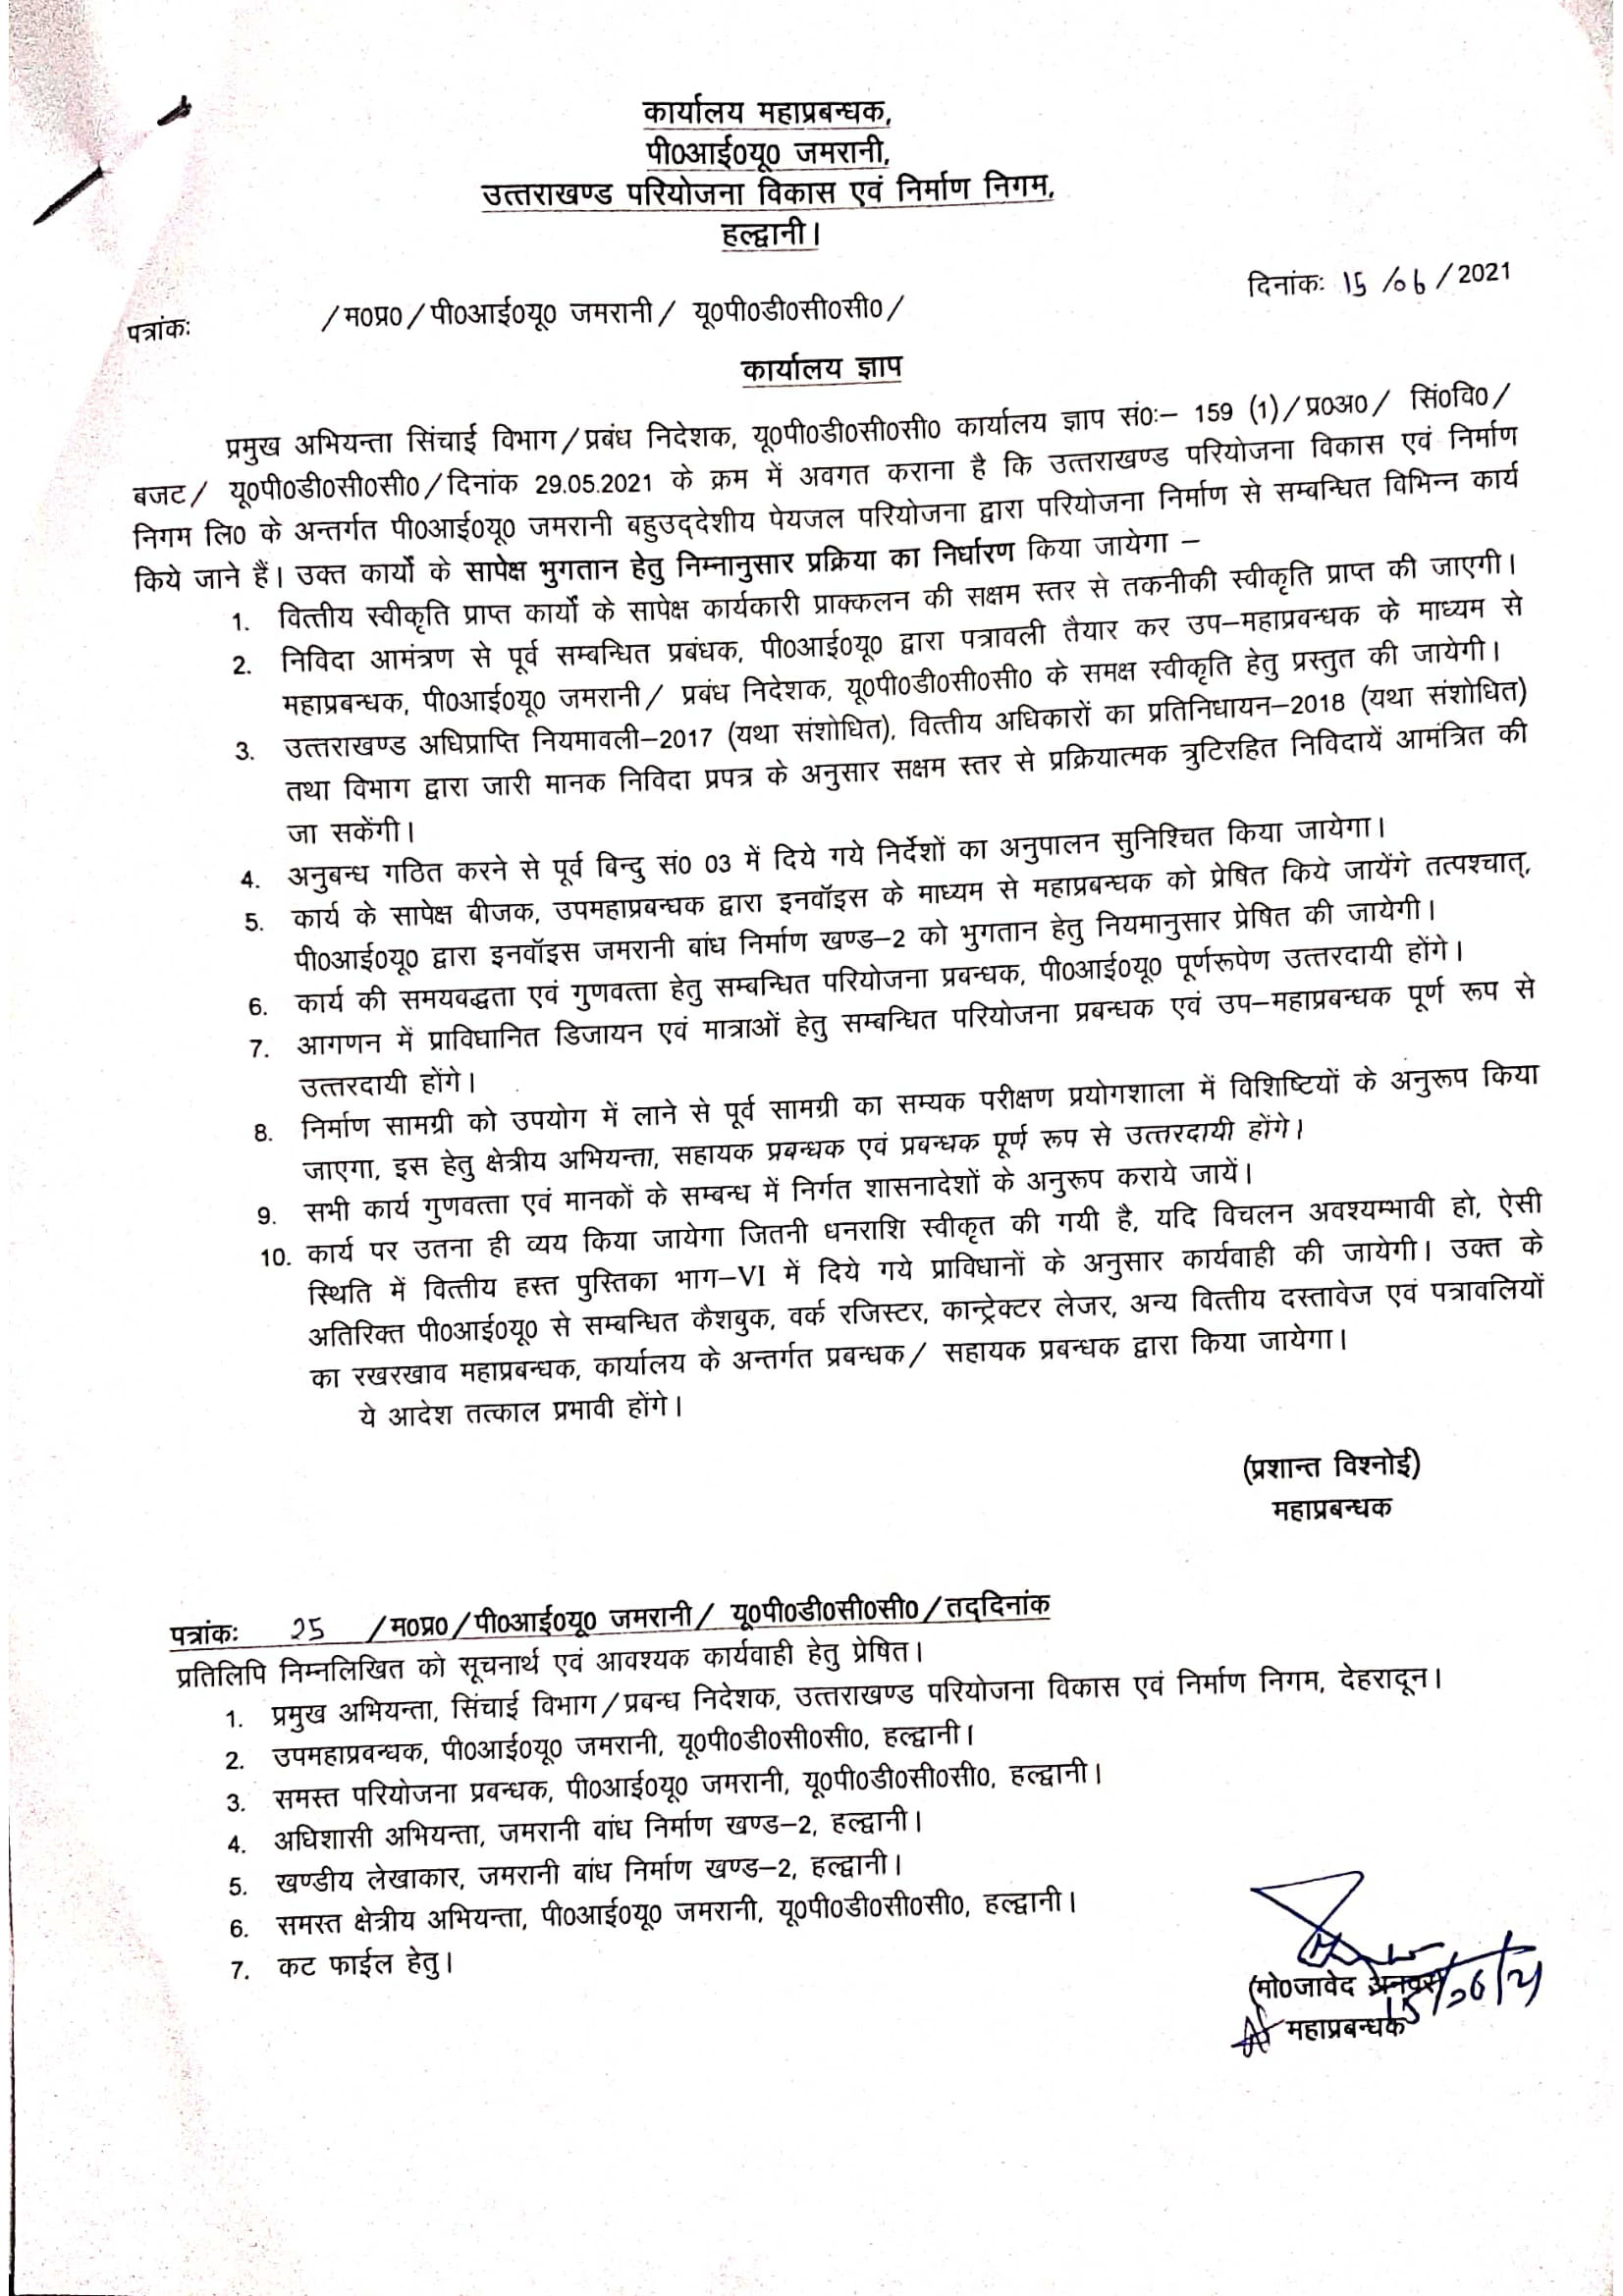 कार्यालय महाप्रबन्धक,
पी0आई0यू0 जमरानी,
उत्तराखण्ड परियोजना विकास एवं निर्माण निगम,
हल्द्वानी।
दिनांकः 15 /06 /2021
पत्रांकः /म0प्र0/पी0आई0यू0 जमरानी/ यू0पी0डी0सी0सी0/
कार्यालय ज्ञाप
प्रमुख अभियन्ता सिंचाई विभाग/प्रबंध निदेशक, यू0पी0डी0सी0सी0 कार्यालय ज्ञाप सं0ः– 159 (1)/प्र0अ0/ सिं0वि0/
बजट/ यू0पी0डी0सी0सी0/दिनांक 29.05.2021 के क्रम में अवगत कराना है कि उत्तराखण्ड परियोजना विकास एवं निर्माण
निगम लि0 के अन्तर्गत पी0आई0यू0 जमरानी बहुउद्देशीय पेयजल परियोजना द्वारा परियोजना निर्माण से सम्बन्धित विभिन्न कार्य
किये जाने हैं। उक्त कार्यो के सापेक्ष भुगतान हेतु निम्नानुसार प्रक्रिया का निर्धारण किया जायेगा –
1. वित्तीय स्वीकृति प्राप्त कार्यों के सापेक्ष कार्यकारी प्राक्कलन की सक्षम स्तर से तकनीकी स्वीकृति प्राप्त की जाएगी।
2. निविदा आमंत्रण से पूर्व सम्बन्धित प्रबंधक, पी0आई0यू0 द्वारा पत्रावली तैयार कर उप–महाप्रवन्धक के माध्यम से
महाप्रबन्धक, पी0आई0यू0 जमरानी/ प्रबंध निदेशक, यू0पी0डी0सी0सी0 के समक्ष स्वीकृति हेतु प्रस्तुत की जायेगी।
3. उत्तराखण्ड अधिप्राप्ति नियमावली–2017 (यथा संशोधित), वित्तीय अधिकारों का प्रतिनिधायन–2018 (यथा संशोधित)
तथा विभाग द्वारा जारी मानक निविदा प्रपत्र के अनुसार सक्षम स्तर से प्रक्रियात्मक त्रुटिरहित निविदायें आमंत्रित की
जा सकेंगी।
4. अनुबन्ध गठित करने से पूर्व बिन्दु सं0 03 में दिये गये निर्देशों का अनुपालन सुनिश्चित किया जायेगा।
5. कार्य के सापेक्ष बीजक, उपमहाप्रबन्धक द्वारा इनवॉइस के माध्यम से महाप्रबन्धक को प्रेषित किये जायेंगे तत्पश्चात्,
पी0आई0यू0 द्वारा इनवॉइस जमरानी बांध निर्माण खण्ड–2 को भुगतान हेतु नियमानुसार प्रेषित की जायेगी।
6. कार्य की समयवद्धता एवं गुणवत्ता हेतु सम्बन्धित परियोजना प्रबन्धक, पी0आई0यू0 पूर्णरूपेण उत्तरदायी होंगे।
7. आगणन में प्राविधानित डिजायन एवं मात्राओं हेतु सम्बन्धित परियोजना प्रबन्धक एवं उप–महाप्रबन्धक पूर्ण रूप से
उत्तरदायी होंगे।
8. निर्माण सामग्री को उपयोग में लाने से पूर्व सामग्री का सम्यक परीक्षण प्रयोगशाला में विशिष्टियों के अनुरूप किया
जाएगा, इस हेतु क्षेत्रीय अभियन्ता, सहायक प्रबन्धक एवं प्रबन्धक पूर्ण रूप से उत्तरदायी होंगे।
9. सभी कार्य गुणवत्ता एवं मानकों के सम्बन्ध में निर्गत शासनादेशों के अनुरूप कराये जायें।
10. कार्य पर उतना ही व्यय किया जायेगा जितनी धनराशि स्वीकृत की गयी है, यदि विचलन अवश्यम्भावी हो, ऐसी
स्थिति में वित्तीय हस्त पुस्तिका भाग–VI में दिये गये प्राविधानों के अनुसार कार्यवाही की जायेगी। उक्त के
अतिरिक्त पी0आई0यू0 से सम्बन्धित कैशबुक, वर्क रजिस्टर, कान्ट्रेक्टर लेजर, अन्य वित्तीय दस्तावेज एवं पत्रावलियों
का रखरखाव महाप्रबन्धक, कार्यालय के अन्तर्गत प्रबन्धक/ सहायक प्रबन्धक द्वारा किया जायेगा।
ये आदेश तत्काल प्रभावी होंगे।
(प्रशान्त विश्नोई)
महाप्रबन्धक
पत्रांकः 25 /म0प्र0/पी0आई0यू0 जमरानी/ यू0पी0डी0सी0सी0/तद्दिनांक
प्रतिलिपि निम्नलिखित को सूचनार्थ एवं आवश्यक कार्यवाही हेतु प्रेषित।
1. प्रमुख अभियन्ता, सिंचाई विभाग/प्रबन्ध निदेशक, उत्तराखण्ड परियोजना विकास एवं निर्माण निगम, देहरादून।
2. उपमहाप्रवन्धक, पी0आई0यू0 जमरानी, यू0पी0डी0सी0सी0, हल्द्वानी।
3. समस्त परियोजना प्रवन्धक, पी0आई0यू0 जमरानी, यू0पी0डी0सी0सी0, हल्द्वानी।
4. अधिशासी अभियन्ता, जमरानी वांध निर्माण खण्ड–2, हल्द्वानी।
5. खण्डीय लेखाकार, जमरानी बांध निर्माण खण्ड–2, हल्द्वानी।
6. समस्त क्षेत्रीय अभियन्ता, पी0आई0यू0 जमरानी, यू0पी0डी0सी0सी0, हल्द्वानी।
7. कट फाईल हेतु।
(मो0जावेद अनवर)
15/06/21
महाप्रबन्धक